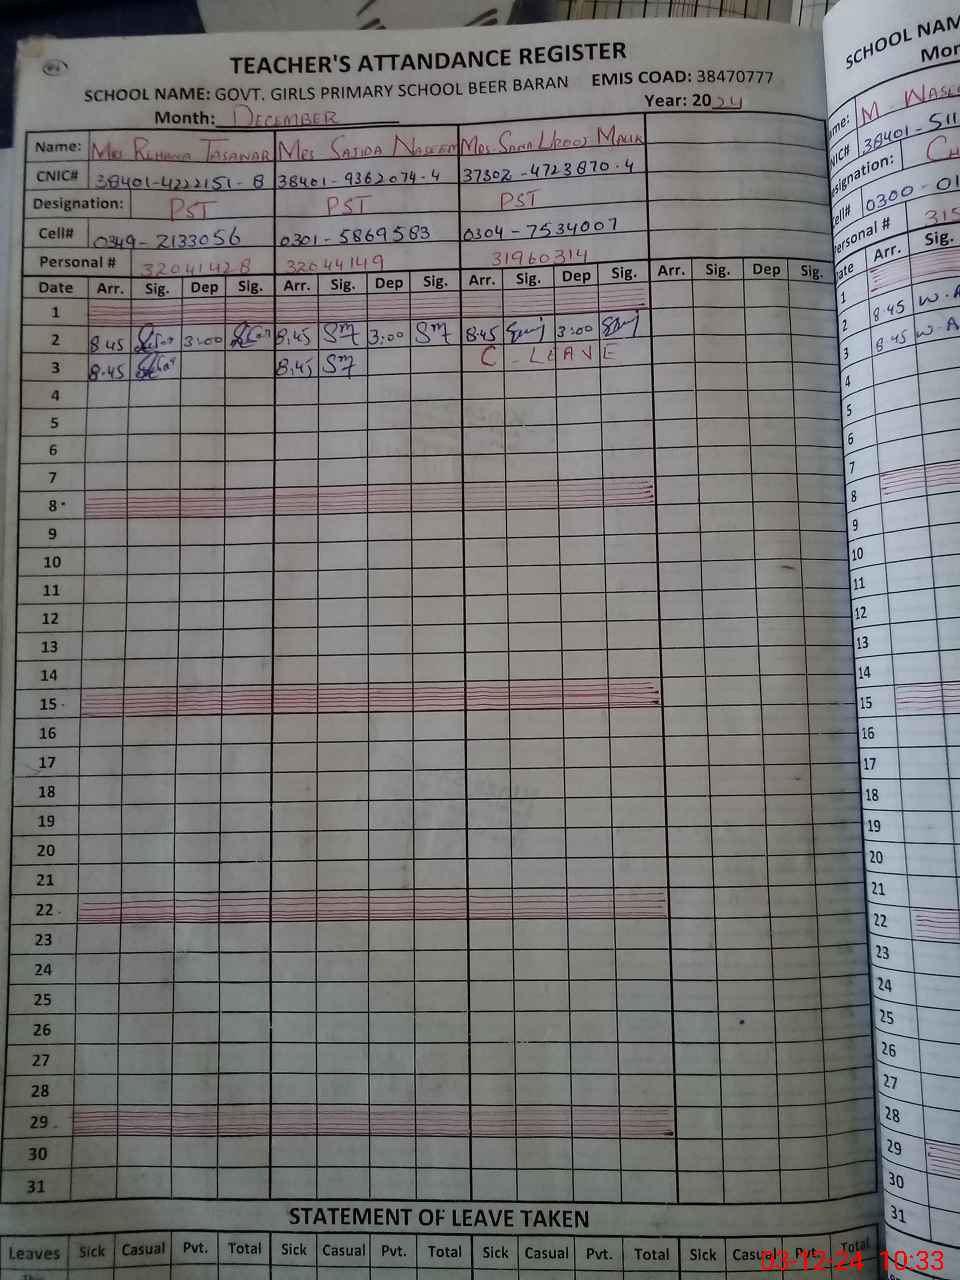 TEACHER'S ATTANDANCE REGISTER
SCHOOL NAME: GOVT. GIRLS PRIMARY SCHOOL BEER BARAN EMIS COAD: 38470777
Month: DECEMBER Year: 2024
Name: Mrs REHANA TASAWAR Mrs SAJIDA NASEEM Mrs. SANA UROOJ MALIK
CNIC# 38401-4222151-8 38401-9362074-4 37302-4723870-4
Designation: PST PST PST
Cell# 0349-2133056 0301-5869583 0304-7534007
Personal # 32041428 32044149 31960314
Date Arr. Sig. Dep Sig. Arr. Sig. Dep Sig. Arr. Sig. Dep Sig. Arr. Sig. Dep Sig.
1
2 8.45 3:00 8.45 3:00 8.45 3:00
3 8.45 8.45 C-LEAVE
4
5
6
7
8
9
10
11
12
13
14
15
16
17
18
19
20
21
22
23
24
25
26
27
28
29
30
31
STATEMENT OF LEAVE TAKEN
Leaves Sick Casual Pvt. Total Sick Casual Pvt. Total Sick Casual Pvt. Total Sick Casual Pvt. Total
This
SCHOOL NAM
Mon
ame: M. WASE
NIC# 38401-511
esignation: CH
Cell# 0300-01
ersonal # 315
ate Arr. Sig.
1
2 8.45 W.A
3 8.45 W.A
4
5
6
7
8
9
10
11
12
13
14
15
16
17
18
19
20
21
22
23
24
25
26
27
28
29
30
31
03-12-24 10:33